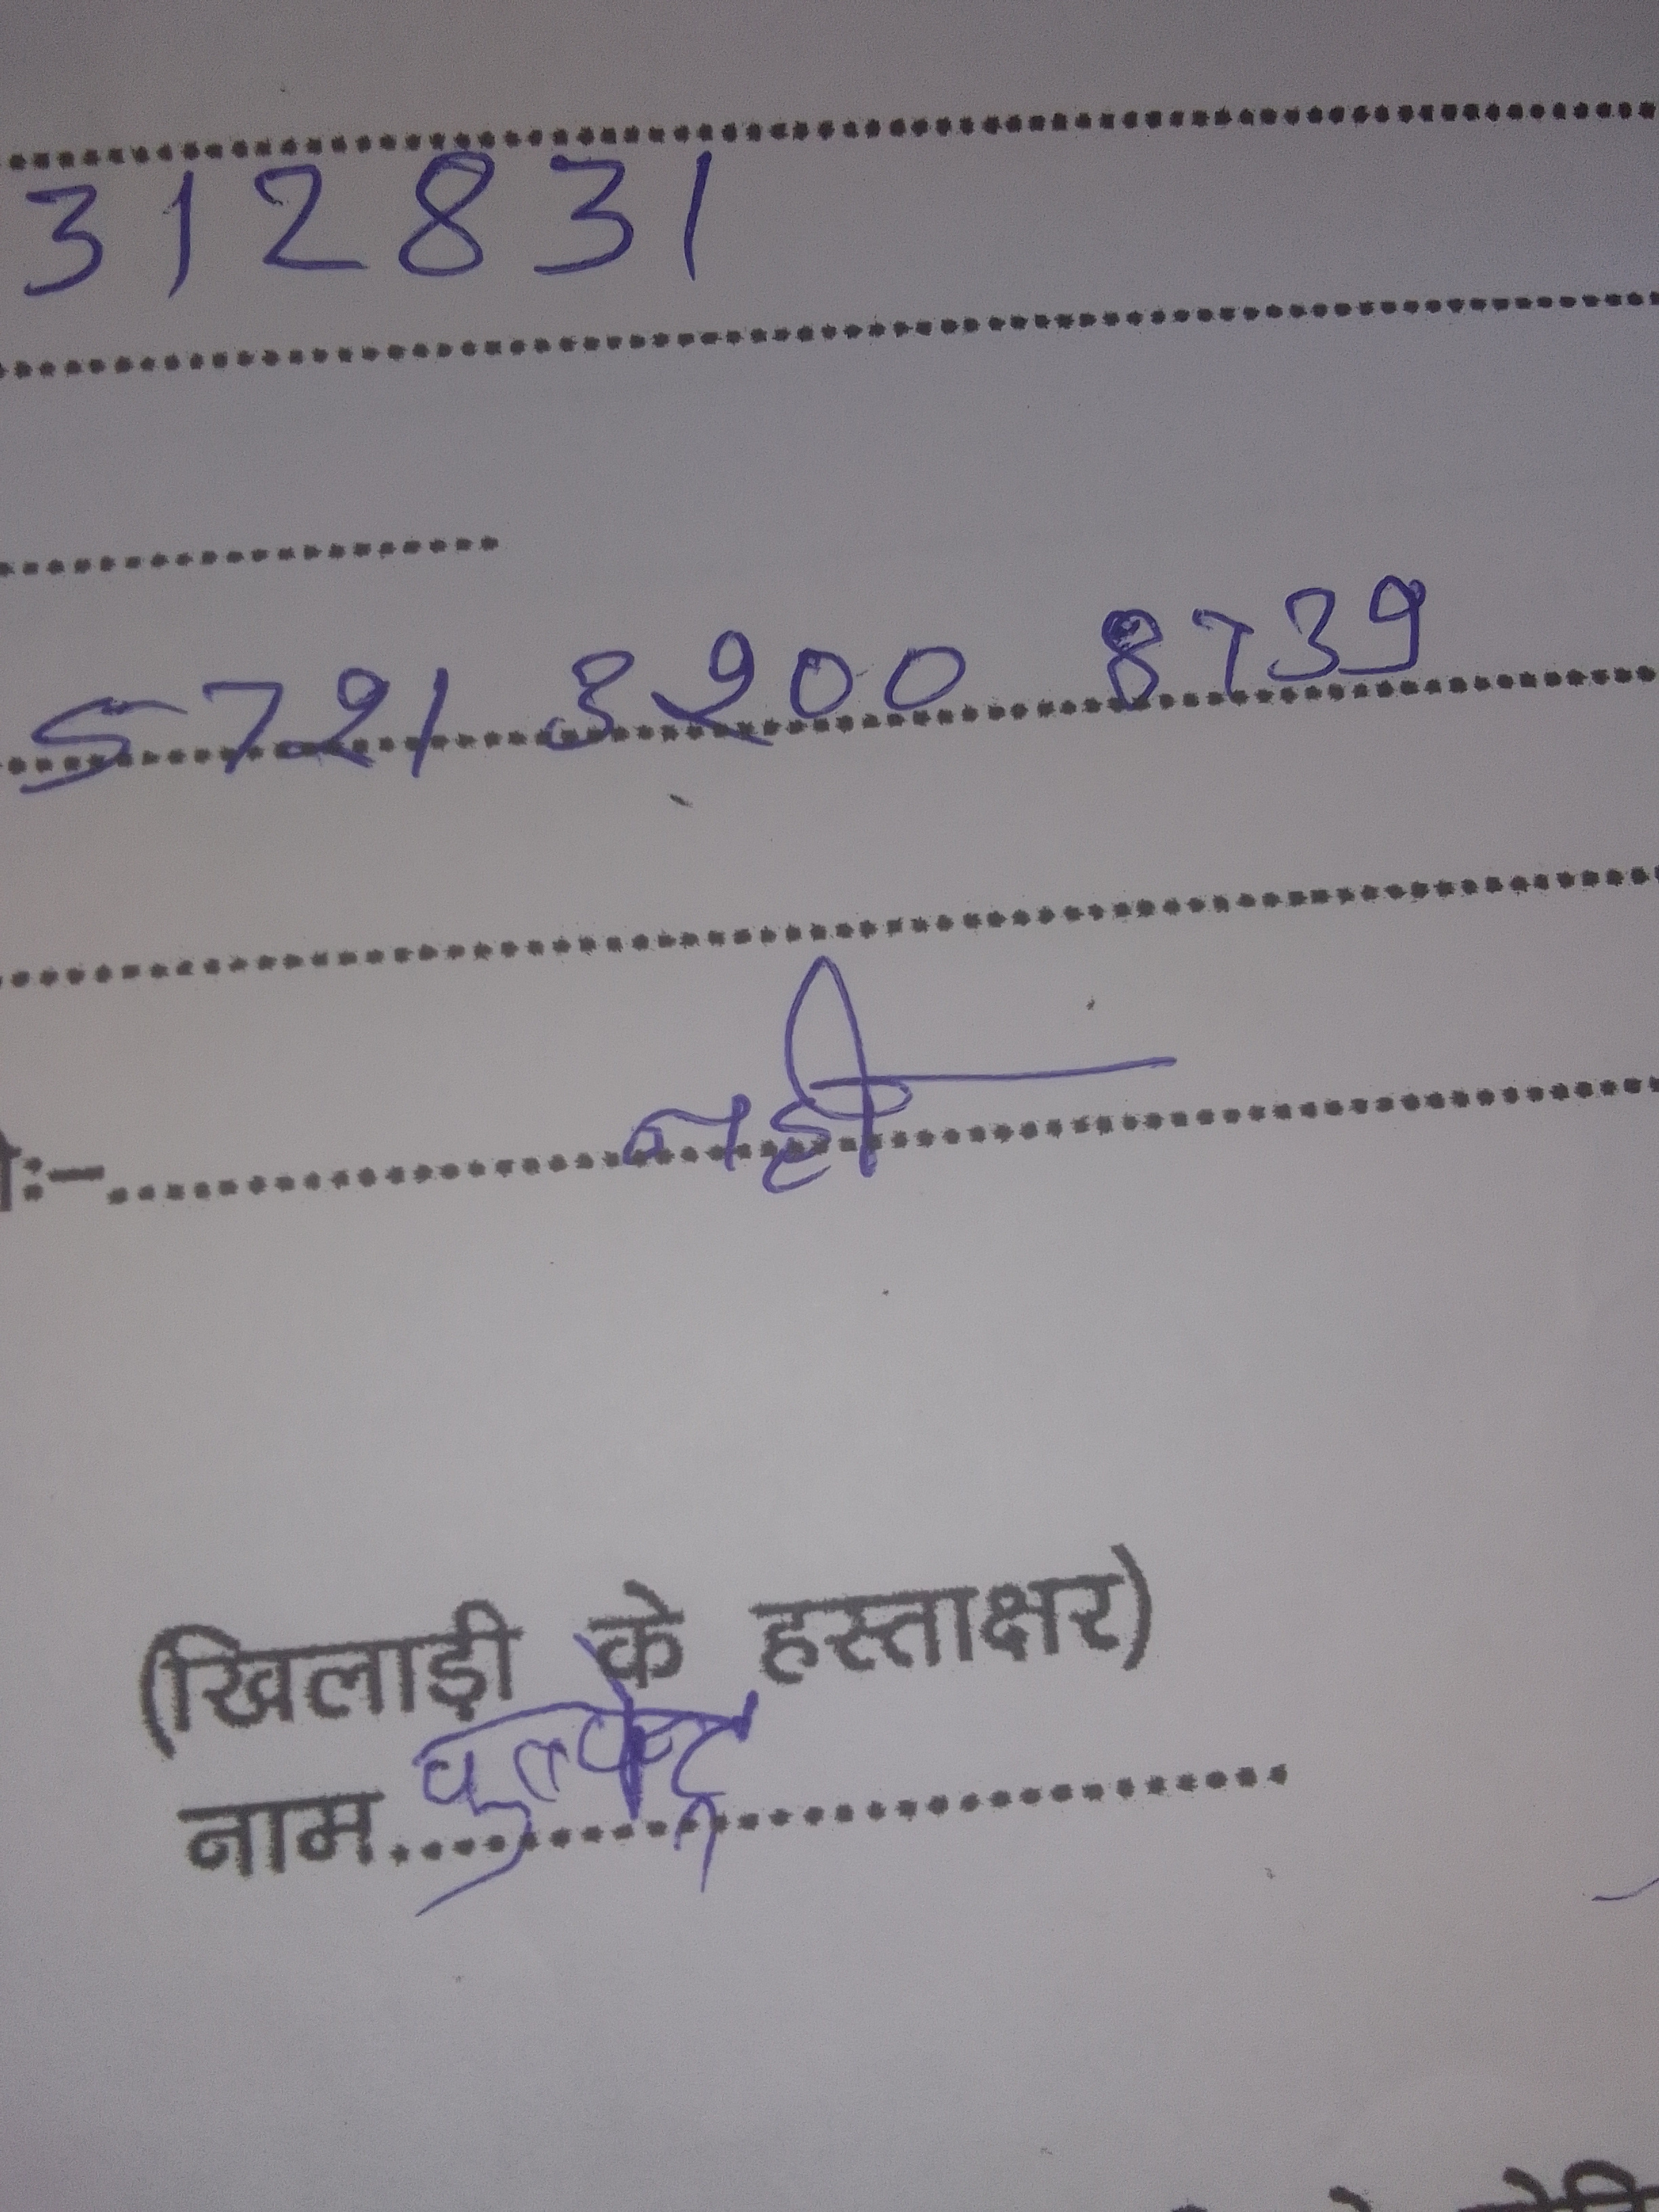 312831
5721 3200 8739
:- नही
(खिलाड़ी के हस्ताक्षर)
नाम